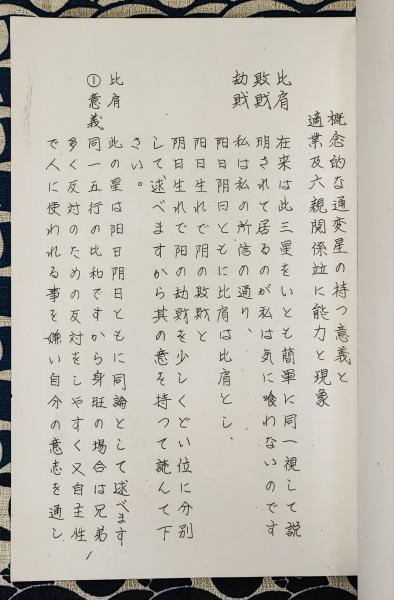 概念的な通変星の持つ意義と
適業及六親関係並に能力と現象
比肩
敗財
劫財
在来は此三星をいとも簡単に同一視して説
明されて居るのが私は気に喰わないのです
私は私の所信の通り、
阳日阴日ともに比肩は比肩とし、
阳日生れで阴の敗財と
阴日生れで阳の劫財を少しくどい位に分別
して述べますから其の意を持つて読んて下
さい。
比肩
①意義
此の星は阳日阴日ともに同論として述べます
同一五行の比和ですから身旺の場合は兄弟
多く反対のための反対をしやすく又自主性
で人に使われる事を嫌い自分の意志を通し
1